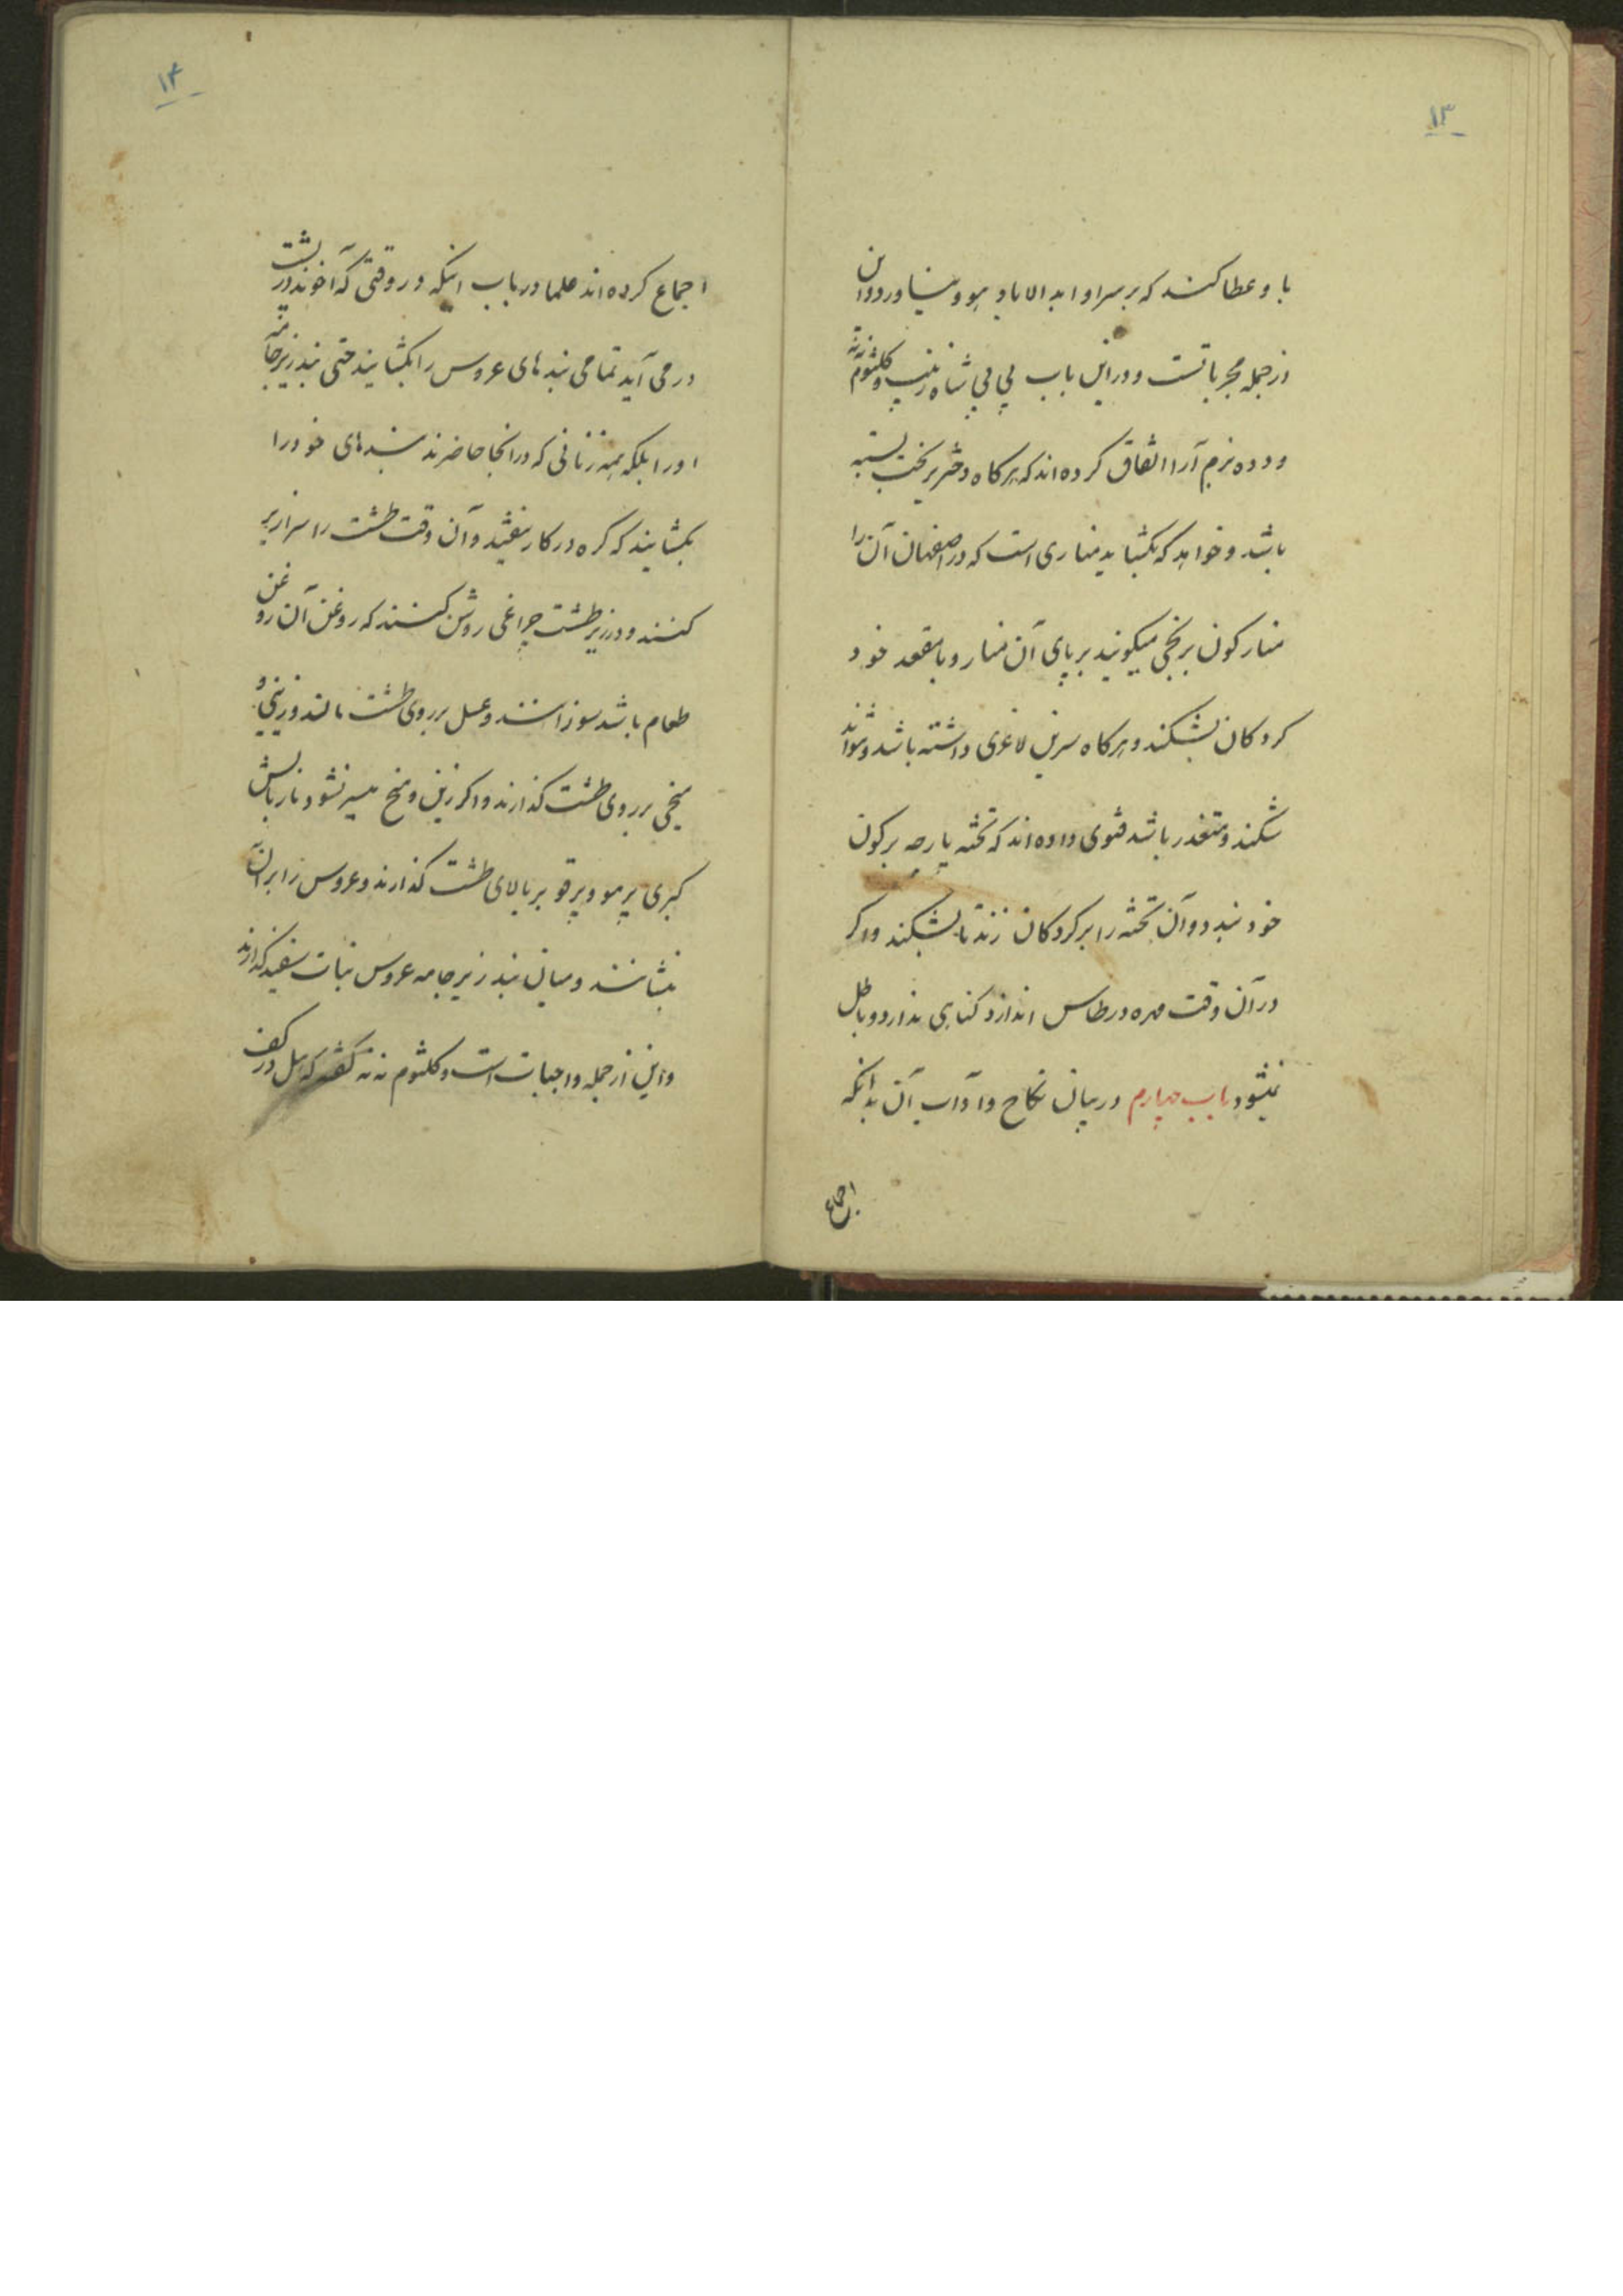 ۱۳
باو عطا کنند که بر سر او ابد الاباد هوو نیاورد و این
از جمله مجرباتست و در این باب بی بی شاه زینب و کلثوم ننه
و دده بزم آرا اتفاق کرده اند که هر کاه دختر بر بخت بسته
باشد و خواهد که بکشاید مناری است که در اصفهان آن را
منار کون برنجی میکویند بر پای آن منار رود بامقعد خود
کردکان بشکند و هر کاه سرین لاغری داشته باشد و نتواند
شکند و متعذر باشد فتوی داده اند که تخته پارچه بر کون
خود بندد و آن تخته را بر کردکان زند تا بشکند و اکر
در آن وقت مهره در طاس اندازد کناهی ندارد و باطل
نمیشود باب چهارم در بیان نکاح و آداب آن بدانکه
اجماع
۱۴
اجماع کرده اند علما در باب اینکه در وقتی که آخوند در پشت
در می آید تمامی بندهای عروس را بکشایند حتی بند زیرجامه
او را بلکه همه زنانی که در آنجا حاضرند بندهای خود را
بکشایند که کره در کار نیفتد و آن وقت طشت را سرازیر
کنند و در زیر طشت چراغی روشن کنند که روغن آن روغن
طعام باشد سوزانند و عسل بر روی طشت مالند و زینی و
میخی بر روی طشت کذارند و اکر زین و میخ میسر نشود ناز بالش
کبری پر مو و پر قو بر بالای طشت کذارند و عروس را بر آن
بنشانند و میان بند زیرجامه عروس نبات سفید کذارند
و این از جمله واجبات است و کلثوم ننه کفته که هل در کف